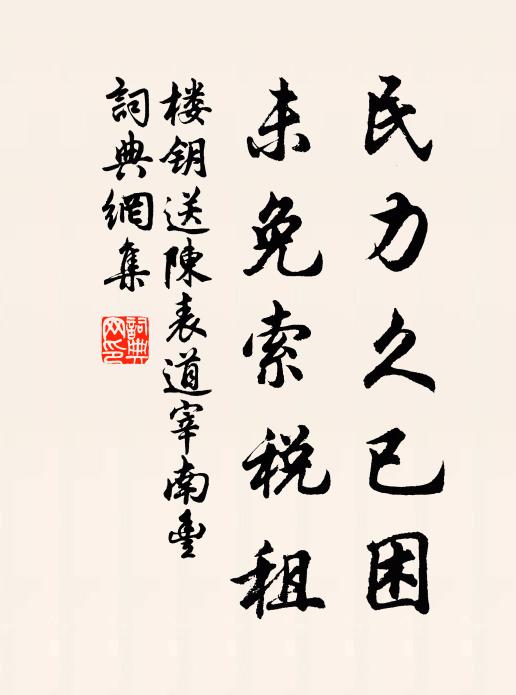 民力久已困
未免索税租
楼钥送陳表道宰南豐
詞典網集
詞典
网印